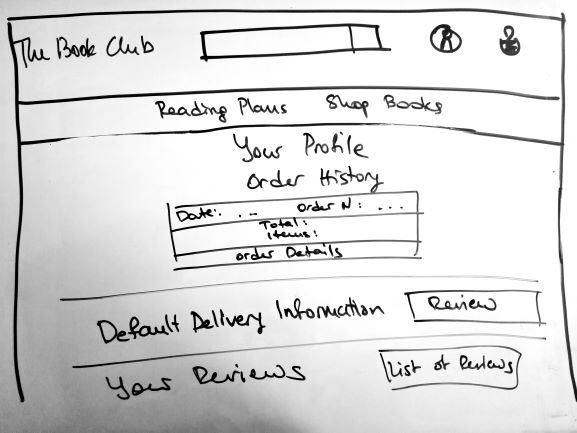 The Book Club
Reading Plans Shop Books
Your Profile
Order History
Date: ... Order N: ...
Total:
items:
order Details
Default Delivery Information Review
Your Reviews List of Reviews